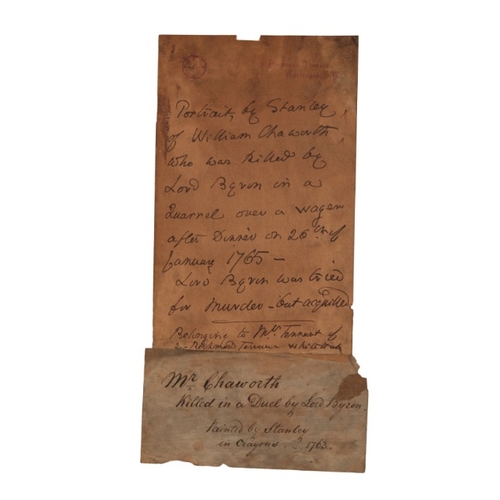 Portrait, by Stanley
of William Chaworth
who was killed by
Lord Byron in a
Quarrel over a wager
after Dinner on 26th of
January 1765 -
Lord Byron was tried
for Murder - but acquitted
Belonging to Mrs Tennant of
Richmond Terrace Whitehall
Mr Chaworth
Killed in a Duel by Lord Byron
Painted by Stanley
in Crayons. 1763.